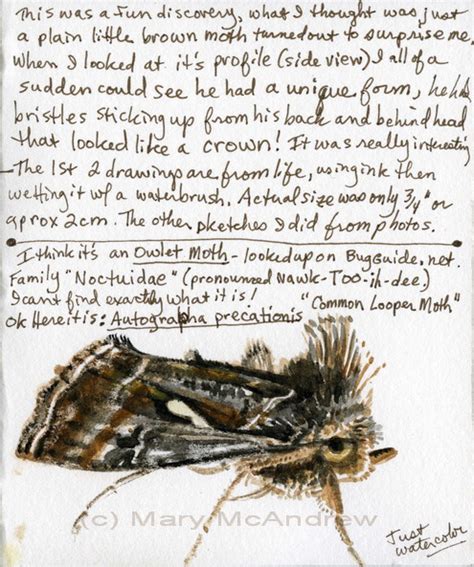 This was a fun discovery, what I thought was just
a plain little brown moth turned out to surprise me.
When I looked at it's profile (side view) I all of a
sudden could see he had a unique form, he had
bristles sticking up from his back and behind head
that looked like a crown! It was really interesting
The 1st 2 drawings are from life, using ink then
wetting it w/ a waterbrush. Actual size was only 3/4" or
aprox 2cm. The other sketches I did from photos.
I think it's an Owlet Moth - looked up on Bugguide.net.
Family "Noctuidae" (pronounced Nawk-Too-ih-dee)
I can't find exactly what it is! "Common Looper Moth"
Ok Here it is: Autographa precationis
(c) Mary McAndrew
Just
watercolor